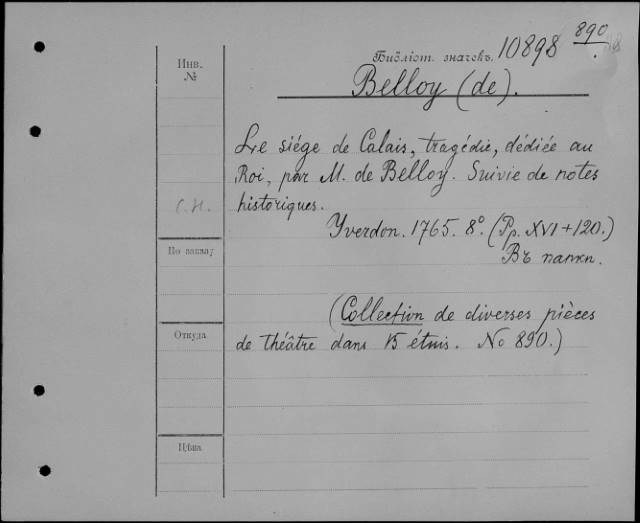 890
Библіот. значекъ. 10898
Инв.
№
Belloy (de).
Le siége de Calais, tragédie, dédiée au
Roi, par M. de Belloy. Suivie de notes
С.Н. historiques.
Yverdon. 1765. 8º. (Pp. XVI+120.)
По заказу
Въ папкѣ.
(Collection de diverses pièces
Откуда
de théâtre dans 15 étuis. No 890.)
Цѣна